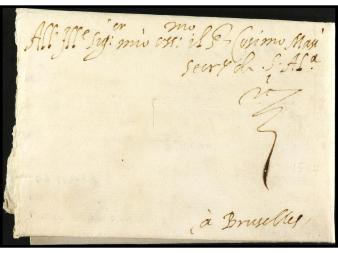 All Ill.e Sig.er mio oss.mo il S.r Cosimo Masi
Secr.o di S. Al.a
à Bruselles